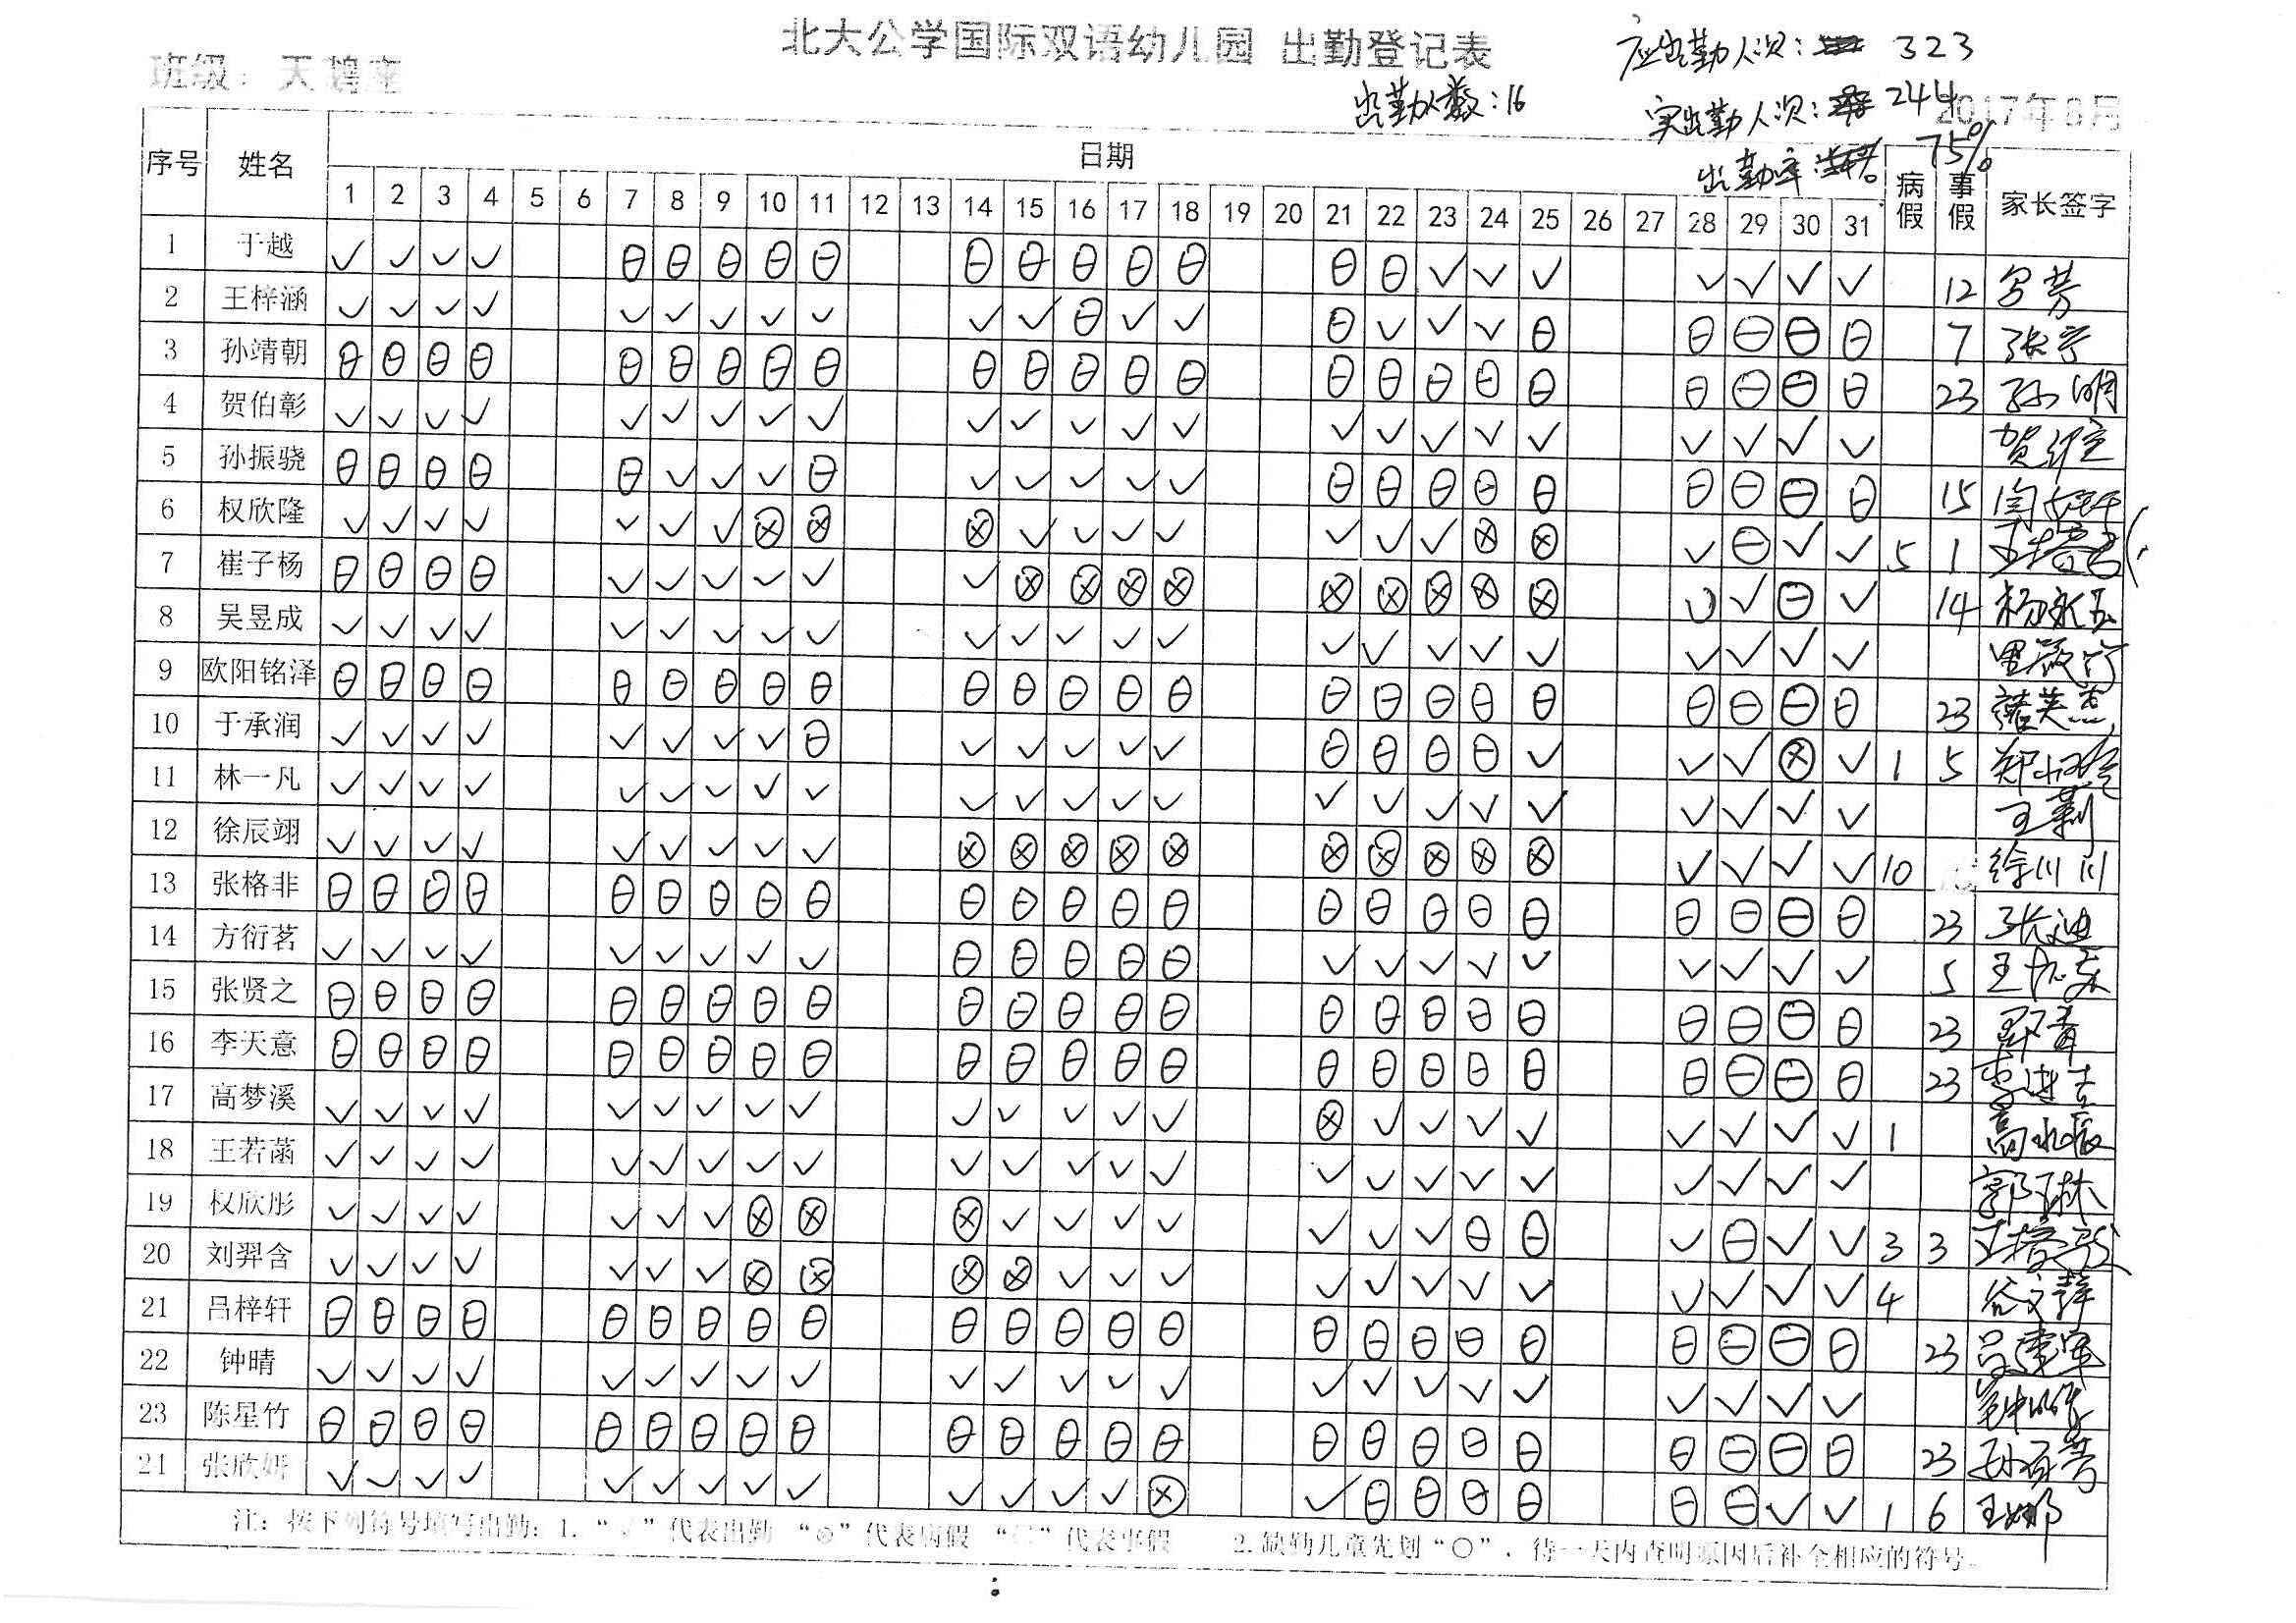 北大公学国际双语幼儿园 出勤登记表
应出勤人次: 323
班级: 天鹅座
出勤人数:16
实出勤人次: 244
2017年8月
出勤率: 75%
序号 姓名 日期 病假 事假 家长签字
1 2 3 4 5 6 7 8 9 10 11 12 13 14 15 16 17 18 19 20 21 22 23 24 25 26 27 28 29 30 31
1 于越 ✓ ✓ ✓ ✓ ⊖ ⊖ ⊖ ⊖ ⊖ ⊖ ⊖ ⊖ ⊖ ⊖ ⊖ ⊖ ✓ ✓ ✓ ✓ ✓ ✓ ✓ 12
2 王梓涵 ✓ ✓ ✓ ✓ ✓ ✓ ✓ ✓ ✓ ✓ ✓ ⊖ ✓ ✓ ⊖ ✓ ✓ ✓ ⊖ ⊖ ⊖ ⊖ ⊖ 7
3 孙靖朝 ⊖ ⊖ ⊖ ⊖ ⊖ ⊖ ⊖ ⊖ ⊖ ⊖ ⊖ ⊖ ⊖ ⊖ ⊖ ⊖ ⊖ ⊖ ⊖ ⊖ ⊖ ⊖ ⊖ 23 孙明
4 贺伯彰 ✓ ✓ ✓ ✓ ✓ ✓ ✓ ✓ ✓ ✓ ✓ ✓ ✓ ✓ ✓ ✓ ✓ ✓ ✓ ✓ ✓ ✓ ✓
5 孙振骁 ⊖ ⊖ ⊖ ⊖ ⊖ ✓ ✓ ✓ ⊖ ✓ ✓ ✓ ✓ ✓ ⊖ ⊖ ⊖ ⊖ ⊖ ⊖ ⊖ ⊖ ⊖ 15
6 权欣隆 ✓ ✓ ✓ ✓ ✓ ✓ ✓ ⊗ ⊗ ⊗ ✓ ✓ ✓ ✓ ✓ ✓ ✓ ⊗ ⊗ ✓ ⊖ ✓ ✓ 5 1
7 崔子杨 ⊖ ⊖ ⊖ ⊖ ✓ ✓ ✓ ✓ ✓ ✓ ⊗ ⊗ ⊗ ⊗ ⊗ ⊗ ⊗ ⊗ ⊗ ✓ ✓ ⊖ ✓ 14
8 吴昱成 ✓ ✓ ✓ ✓ ✓ ✓ ✓ ✓ ✓ ✓ ✓ ✓ ✓ ✓ ✓ ✓ ✓ ✓ ✓ ✓ ✓ ✓ ✓
9 欧阳铭泽 ⊖ ⊖ ⊖ ⊖ ⊖ ⊖ ⊖ ⊖ ⊖ ⊖ ⊖ ⊖ ⊖ ⊖ ⊖ ⊖ ⊖ ⊖ ⊖ ⊖ ⊖ ⊖ ⊖ 23
10 于承润 ✓ ✓ ✓ ✓ ✓ ✓ ✓ ✓ ⊖ ✓ ✓ ✓ ✓ ✓ ⊖ ⊖ ⊖ ⊖ ✓ ✓ ✓ ⊗ ✓ 1 5
11 林一凡 ✓ ✓ ✓ ✓ ✓ ✓ ✓ ✓ ✓ ✓ ✓ ✓ ✓ ✓ ✓ ✓ ✓ ✓ ✓ ✓ ✓ ✓ ✓
12 徐辰翊 ✓ ✓ ✓ ✓ ✓ ✓ ✓ ✓ ✓ ⊗ ⊗ ⊗ ⊗ ⊗ ⊗ ⊗ ⊗ ⊗ ⊗ ✓ ✓ ✓ ✓ 10 徐川川
13 张格非 ⊖ ⊖ ⊖ ⊖ ⊖ ⊖ ⊖ ⊖ ⊖ ⊖ ⊖ ⊖ ⊖ ⊖ ⊖ ⊖ ⊖ ⊖ ⊖ ⊖ ⊖ ⊖ ⊖ 23 张迪
14 方衍茗 ✓ ✓ ✓ ✓ ✓ ✓ ✓ ✓ ✓ ⊖ ⊖ ⊖ ⊖ ⊖ ✓ ✓ ✓ ✓ ✓ ✓ ✓ ✓ ✓ 5
15 张贤之 ⊖ ⊖ ⊖ ⊖ ⊖ ⊖ ⊖ ⊖ ⊖ ⊖ ⊖ ⊖ ⊖ ⊖ ⊖ ⊖ ⊖ ⊖ ⊖ ⊖ ⊖ ⊖ ⊖ 23
16 李天意 ⊖ ⊖ ⊖ ⊖ ⊖ ⊖ ⊖ ⊖ ⊖ ⊖ ⊖ ⊖ ⊖ ⊖ ⊖ ⊖ ⊖ ⊖ ⊖ ⊖ ⊖ ⊖ ⊖ 23
17 高梦溪 ✓ ✓ ✓ ✓ ✓ ✓ ✓ ✓ ✓ ✓ ✓ ✓ ✓ ✓ ⊗ ✓ ✓ ✓ ✓ ✓ ✓ ✓ ✓ 1
18 王若菡 ✓ ✓ ✓ ✓ ✓ ✓ ✓ ✓ ✓ ✓ ✓ ✓ ✓ ✓ ✓ ✓ ✓ ✓ ✓ ✓ ✓ ✓ ✓
19 权欣彤 ✓ ✓ ✓ ✓ ✓ ✓ ✓ ⊗ ⊗ ⊗ ✓ ✓ ✓ ✓ ✓ ✓ ✓ ⊖ ⊖ ✓ ⊖ ✓ ✓ 3 3
20 刘羿含 ✓ ✓ ✓ ✓ ✓ ✓ ✓ ⊗ ⊗ ⊗ ⊗ ✓ ✓ ✓ ✓ ✓ ✓ ✓ ✓ ✓ ✓ ✓ ✓ 4
21 吕梓轩 ⊖ ⊖ ⊖ ⊖ ⊖ ⊖ ⊖ ⊖ ⊖ ⊖ ⊖ ⊖ ⊖ ⊖ ⊖ ⊖ ⊖ ⊖ ⊖ ⊖ ⊖ ⊖ ⊖ 23 吕建军
22 钟晴 ✓ ✓ ✓ ✓ ✓ ✓ ✓ ✓ ✓ ✓ ✓ ✓ ✓ ✓ ✓ ✓ ✓ ✓ ✓ ✓ ✓ ✓ ✓
23 陈星竹 ⊖ ⊖ ⊖ ⊖ ⊖ ⊖ ⊖ ⊖ ⊖ ⊖ ⊖ ⊖ ⊖ ⊖ ⊖ ⊖ ⊖ ⊖ ⊖ ⊖ ⊖ ⊖ ⊖ 23
24 张欣妍 ✓ ✓ ✓ ✓ ✓ ✓ ✓ ✓ ✓ ✓ ✓ ✓ ✓ ⊗ ✓ ⊖ ⊖ ⊖ ⊖ ⊖ ⊖ ✓ ✓ 1 6 王娜
注: 按下列符号填写出勤: 1. “✓”代表出勤 “⊗”代表病假 “⊖”代表事假 2.缺勤儿童先划“〇”, 待一天内查明原因后补全相应的符号。